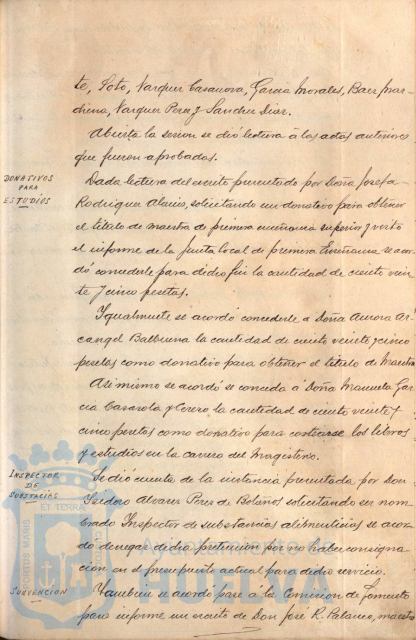 te, Soto, Vazquez Casanova, Garcia Morales, Baez Mar-
chena, Vazquez Perez y Sanchez Diaz.
Abierta la sesion se dió lectura á las actas anteriores
que fueron aprobadas.
DONATIVOS
PARA
ESTUDIOS
Dada lectura del escrito presentado por Doña Josefa
Rodriguez solicitando un donativo para obtener
el titulo de maestra de primera enseñanza superior y visto
el informe de la Junta local de primera Enseñanza se acor-
dó concederle para dicho fin la cantidad de ciento vein-
te y cinco pesetas.
Igualmente se acordó concederle a Doña Aurora Ar-
cangel Balbuena la cantidad de ciento veinte y cinco
pesetas como donativo para obtener el titulo de Maestra
Asimismo se acordó se conceda á Doña Manuela Gar-
cia Casasola y la cantidad de ciento veinte y
cinco pesetas como donativo para costearse los libros
y estudios en la carrera del Magisterio.
INSPECTOR
DE
SUBSTACIAS
Se dió cuenta de la instancia presentada por Don
Isidoro Alvarez Perez de Bolaños solicitando ser nom-
brado Inspector de substancias alimenticias se acor-
dó denegar dicha pretension por no haber consigna-
cion en el presupuesto actual para dicho servicio.
SUBVENCION
Tambien se acordó pase á la Comision de Fomento
para informe un escrito de Don José R. Palanco, maestro
PORTUS MARIS
ET TERRAE
Ayuntamiento de
HUELVA